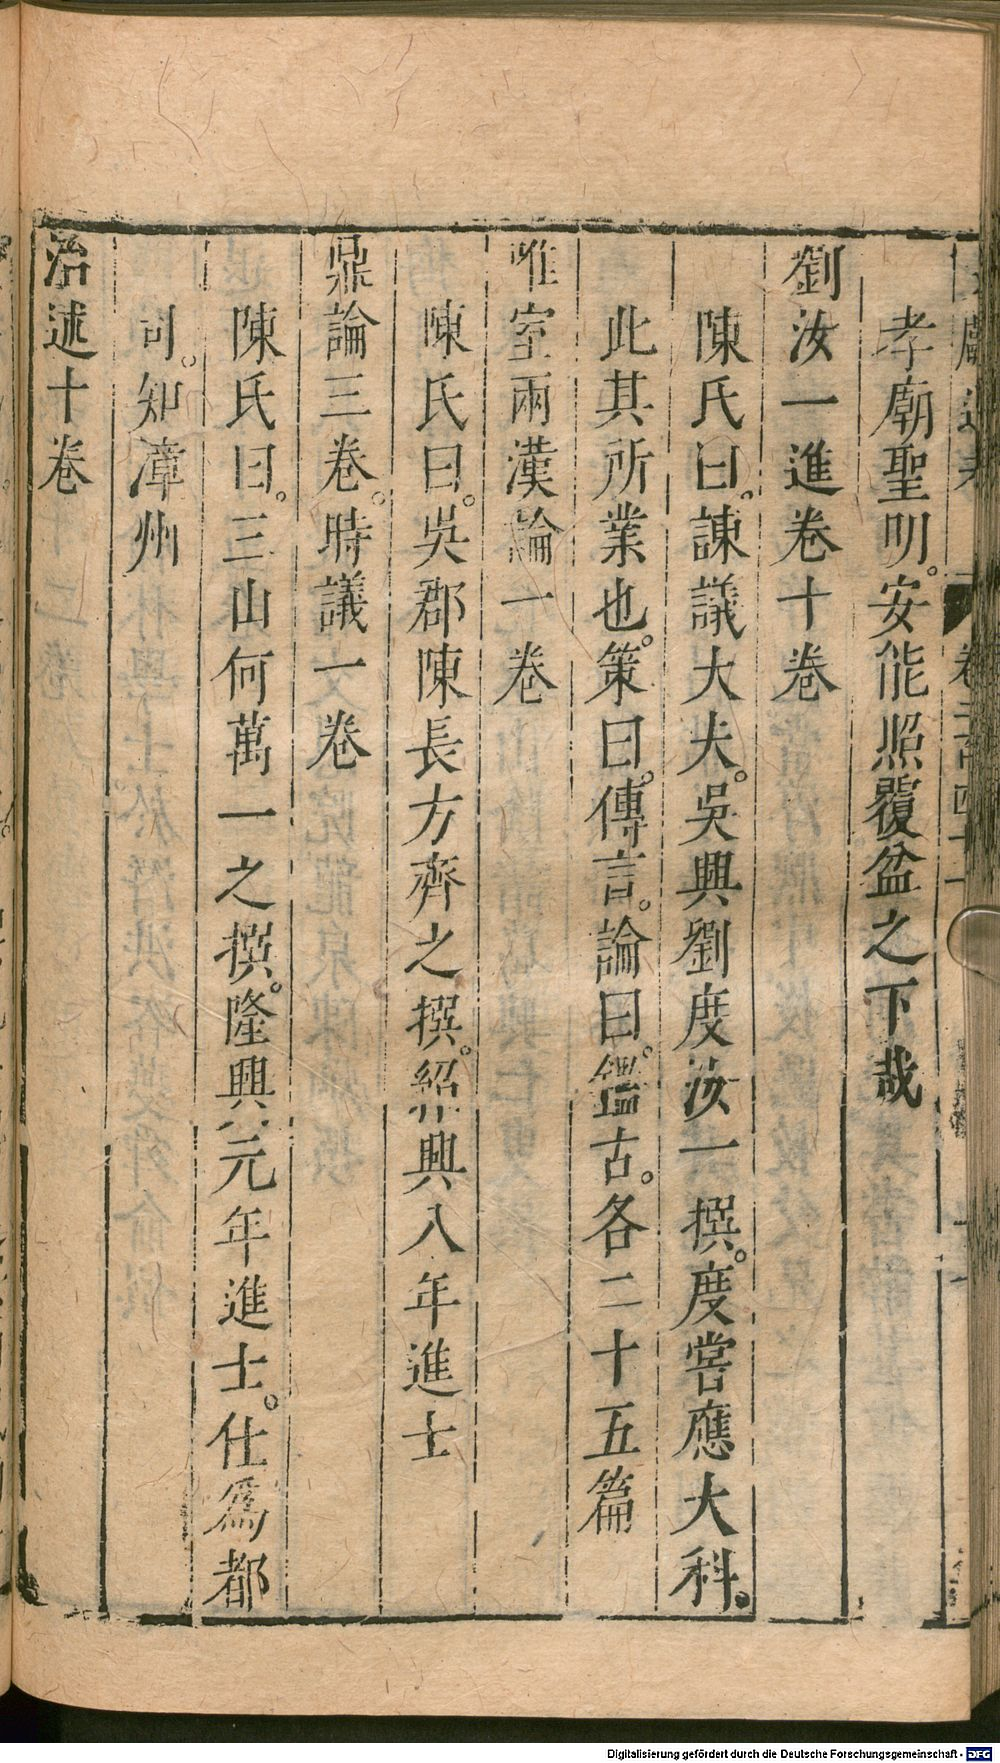 孝廟聖明。安能照覆盆之下哉
劉汝一進卷十卷
陳氏曰。諌議大夫。吳興劉度汝一撰。度嘗應大科。
此其所業也。策曰。傳言。論曰。鑑古。各二十五篇
唯室兩漢論一卷
陳氏曰。吳郡陳長方齊之撰。紹興八年進士
鼎論三卷。時議一卷
陳氏曰。三山何萬一之撰。隆興元年進士。仕爲都
司。知漳州
治述十卷
Digitalisierung gefördert durch die Deutsche Forschungsgemeinschaft - DFG